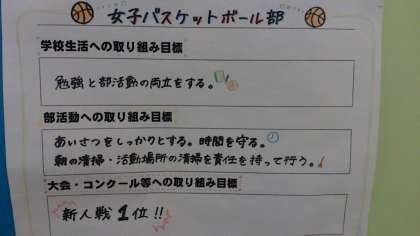 女子バスケットボール部
学校生活への取り組み目標
勉強と部活動の両立をする。
部活動への取り組み目標
あいさつをしっかりとする。時間を守る。
朝の清掃・活動場所の清掃を責任を持って行う。
大会・コンクール等への取り組み目標
新人戦1位!!